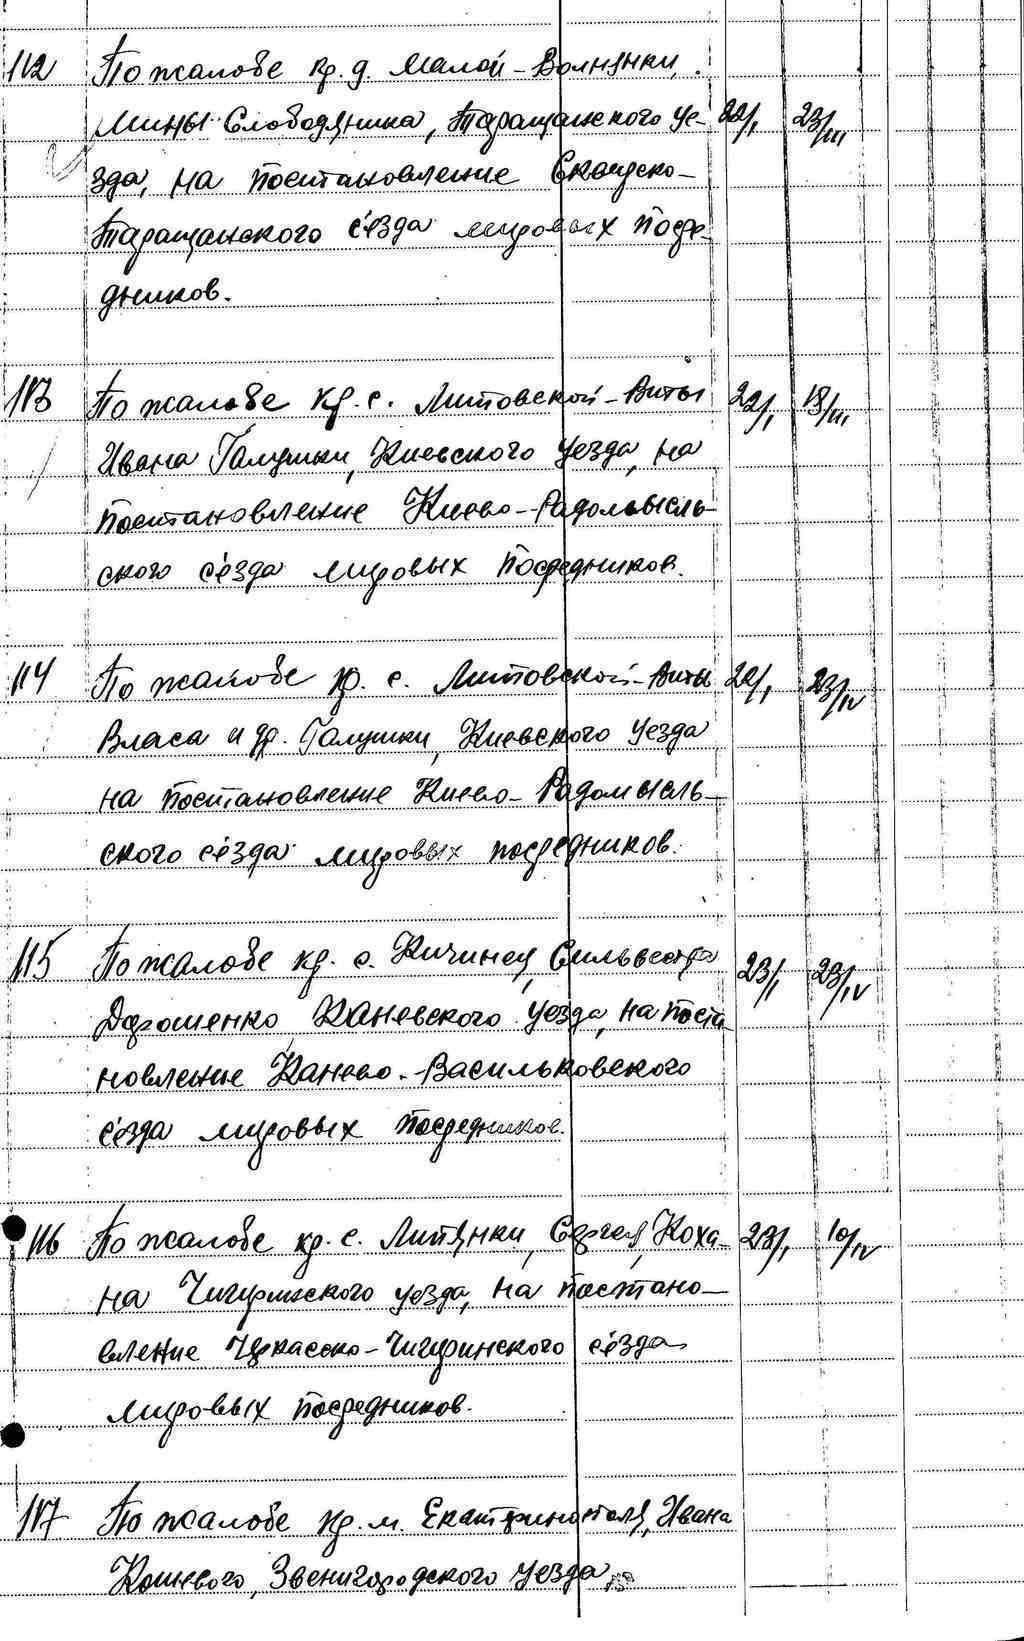 112 По жалобе кр. д. Малой-Волнянки,
Мины Слободяника, Таращанского уе- 22/I 23/III
зда, на постановление Сквирско-
Таращанского с'езда мировых посре-
дников.
113 По жалобе кр. с. Литовской-Виты 22/I 18/III
Ивана Галушки, Киевского уезда, на
постановление Киево-Радомысль-
ского с'езда мировых посредников.
114 По жалобе кр. с. Литовской-Виты 22/I 23/IV
Власа и др. Галушки, Киевского уезда
на постановление Киево-Радомысль-
ского с'езда мировых посредников.
115 По жалобе кр. с. Кичинец, Сильвестра 23/I 23/IV
Дорошенко Каневского уезда, на поста-
новление Канево-Васильковского
с'езда мировых посредников.
116 По жалобе кр. с. Липянки, Сергея Коха- 23/I 10/IV
на Чигиринского уезда, на постано-
вление Черкасско-Чигиринского с'езда
мировых посредников.
117 По жалобе кр. м. Екатеринополя, Ивана
Кошевого, Звенигородского уезда,